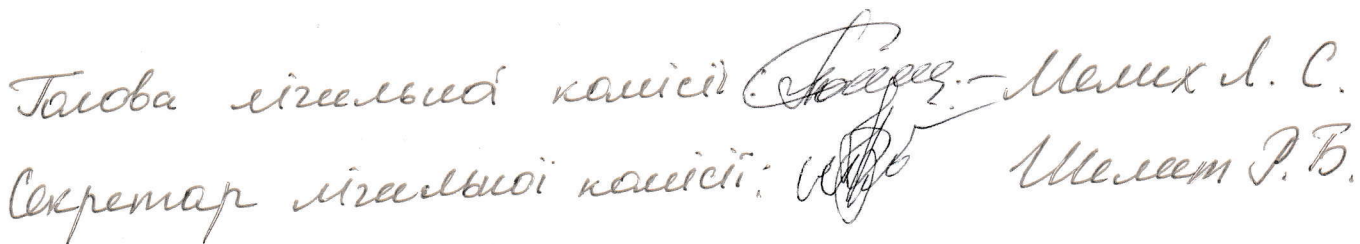 Голова лічильної комісії: Мелих Л. С.
Секретар лічильної комісії: Шелест Р. Б.